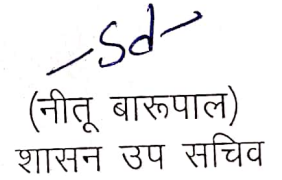 -Sd-
(नीतू बारूपाल)
शासन उप सचिव